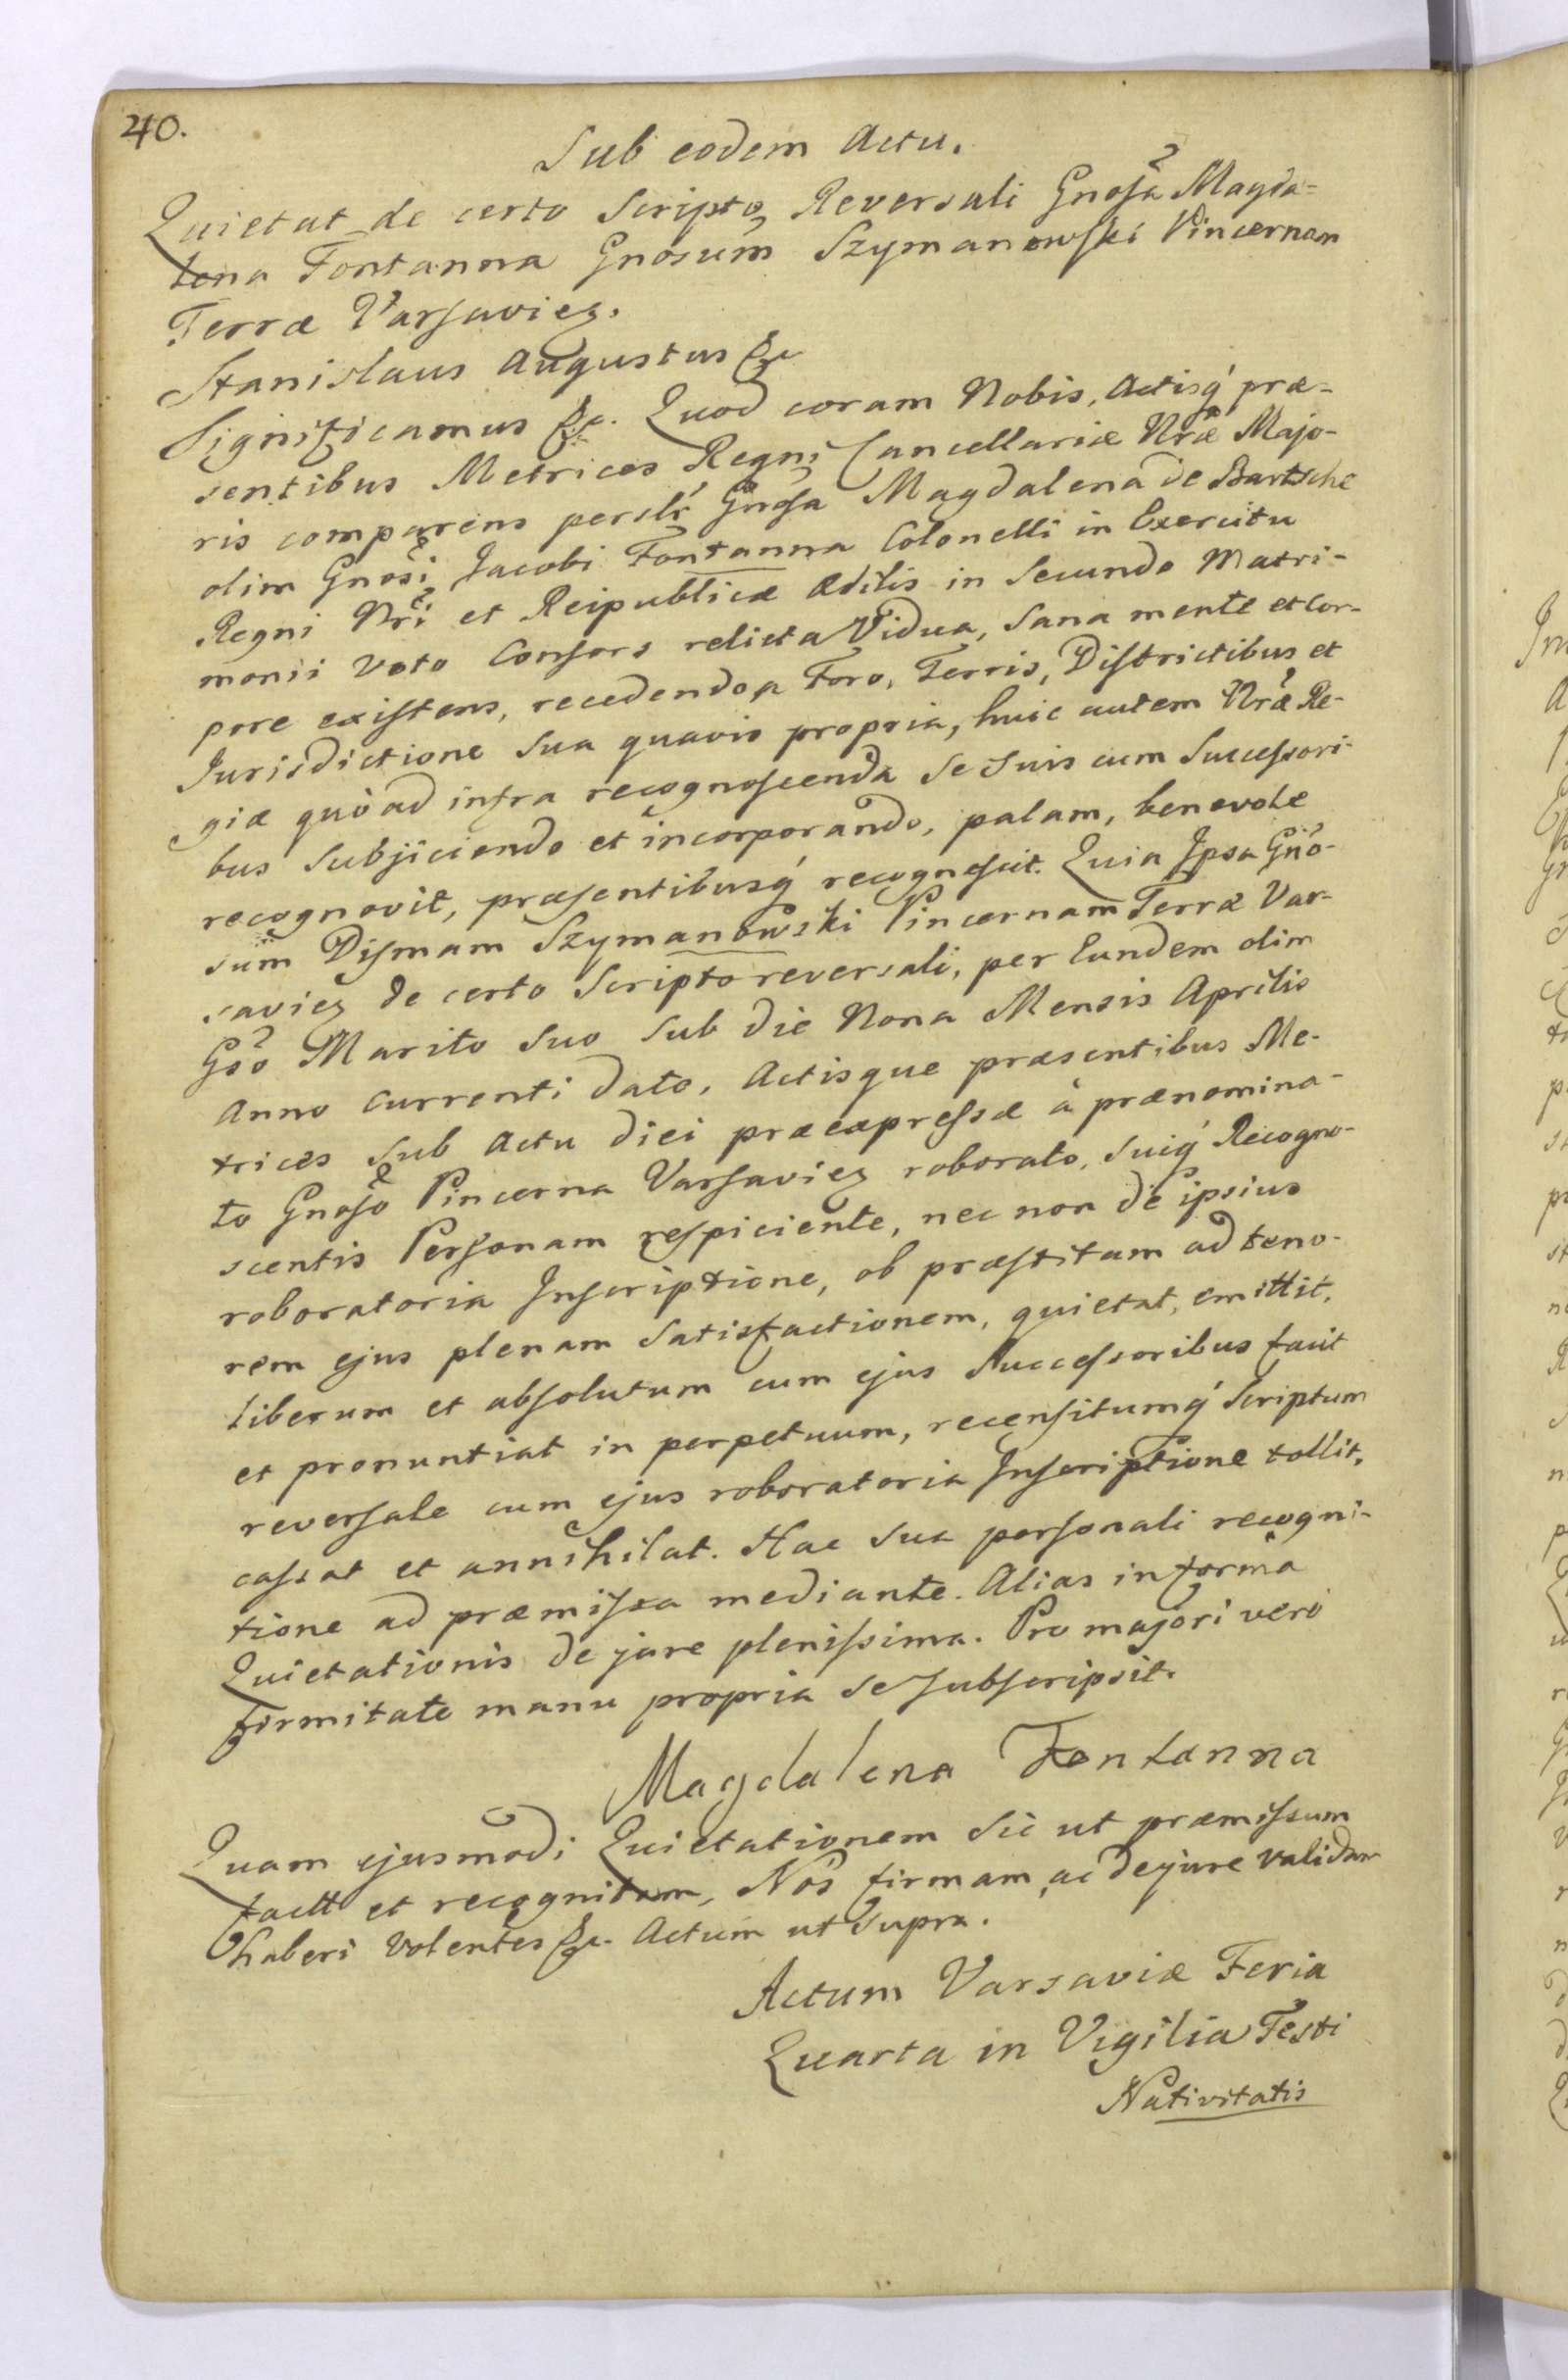 40.
Sub eodem Actu.
Quietat de certo Scripto Reversali Gnosa Magda-
lena Fontanna Gnosum Szymanowski Pincernam
Terræ Varsavieƺ.
Stanislaus Augustus &c
Significamus &c. Quod coram Nobis, Actisq́ præ-
sentibus Metrices Regni Cancellariæ Nræ Majo-
ris comparens perslr Gnosa Magdalena de Bartsche
olim Gnosi Jacobi Fontanna Colonelli in Exercitu
Regni Nri et Reipublicæ Ædilis in Secundo Matri-
monii Voto Consors relicta Vidua, Sana mente et Cor-
pore existens, recedendo a Foro, Terris, Districtibus et
Jurisdictione Sua quavis propria, huic autem Nræ Re-
giæ quò ad infra recognoscenda Se Suis cum Successori-
bus Subjiciendo et incorporando, palam, benevole
recognovit, præsentibusq́ recognoscit. Quia Ipsa Gno-
sum Dismam Szymanowski Pincernam Terræ Var-
savieƺ de certo Scripto reversali, per Eundem olim
Gso Marito Suo Sub die Nona Mensis Aprilis
Anno Currenti dato, Actisque præsentibus Me-
trices Sub Actu diei præexpressæ à prænomina-
to Gnoso Pincerna Varsavieƺ roborato, Suiq́ Recogno-
scentis Personam respiciente, nec non de ipsius
roboratoria Inscriptione, ob præstitam ad teno-
rem ejus plenam Satisfactionem, quietat, emittit,
liberum et absolutum cum ejus Successoribus facit
et pronuntiat in perpetuum, recensitumq́ Scriptum
reversale cum ejus roboratoria Inscriptione tollit,
cassat et annihilat. Hac Sua personali recogni-
tione ad præmissa mediante. Alias in forma
Quietationis de jure plenissima. Pro majori vero
firmitate manu propria se Subscripsit.
Magdalena Fontanna
Quam ejusmodi Quietationem Sic ut præmissum
factt et recognitam, Nos firmam ac de jure validam
haberi Volentes &c. Actum ut Supra.
Actum Varsaviæ Feria
Quarta in Vigilia Festi
Nativitatis